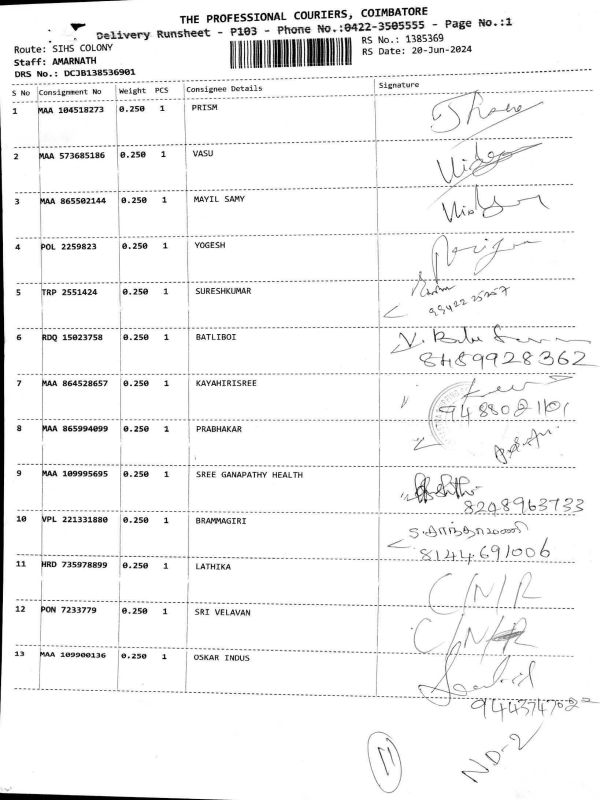 THE PROFESSIONAL COURIERS, COIMBATORE
Delivery Runsheet - P103 - Phone No.:0422-3505555 - Page No.:1
Route: SIHS COLONY
RS No.: 1385369
Staff: AMARNATH
RS Date: 20-Jun-2024
DRS No.: DCJB138536901
S No Consignment No Weight PCS Consignee Details Signature
1 MAA 104518273 0.250 1 PRISM
2 MAA 573685186 0.250 1 VASU
3 MAA 865502144 0.250 1 MAYIL SAMY
4 POL 2259823 0.250 1 YOGESH
5 TRP 2551424 0.250 1 SURESHKUMAR
6 RDQ 15023758 0.250 1 BATLIBOI
8489928362
7 MAA 864528657 0.250 1 KAYAHIRISREE
8 MAA 865994099 0.250 1 PRABHAKAR
9 MAA 109995695 0.250 1 SREE GANAPATHY HEALTH
8248963733
10 VPL 221331880 0.250 1 BRAMMAGIRI
8144691006
11 HRD 735978899 0.250 1 LATHIKA C/N/R
12 PON 7233779 0.250 1 SRI VELAVAN C/N/R
13 MAA 109900136 0.250 1 OSKAR INDUS
11
ND-2